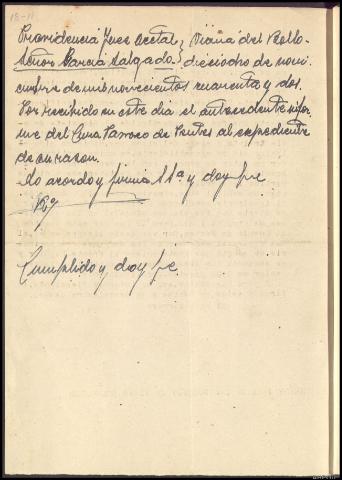 18-11
Providencia Juez Acctal; Viana del Bollo
Señor Garcia Salgado. dieciocho de novi
embre de mil novecientos cuarenta y dos.
Por recibido en este dia el antecedente infor
me del Cura Parroco de Pentes al expediente
de su razon.
Lo acordo y firma SSª y doy fe

Cumplido y doy fe.